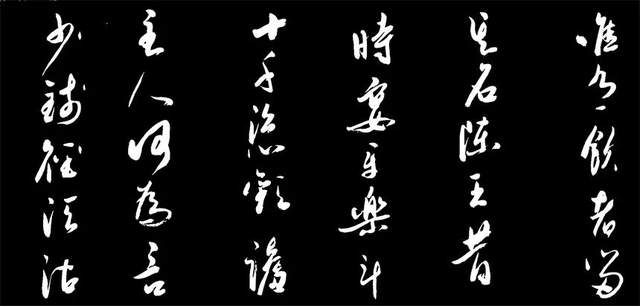 唯有飲者留
其名陳王昔
時宴平樂斗
十千恣歡謔
主人何為言
少錢徑須沽